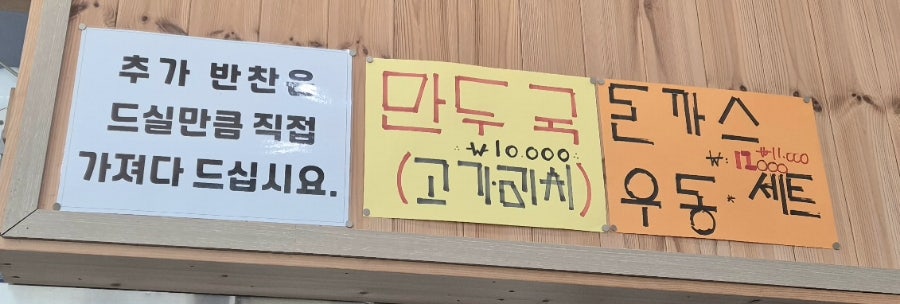 추가 반찬은
드실만큼 직접
가져다 드십시요.
만두국
₩10.000
(고기.김치)
돈까스
₩11.000
₩: 12000
우동 * 세트